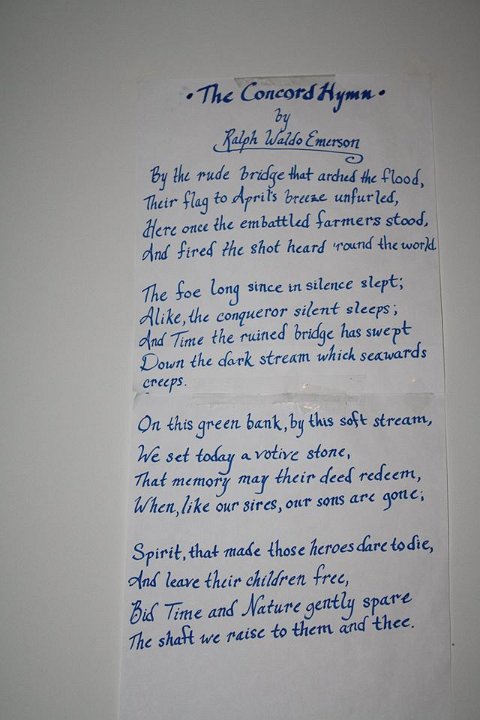 • The Concord Hymn •
by
Ralph Waldo Emerson
By the rude bridge that arched the flood,
Their flag to April's breeze unfurled,
Here once the embattled farmers stood,
And fired the shot heard 'round the world
The foe long since in silence slept;
Alike, the conqueror silent sleeps;
And Time the ruined bridge has swept
Down the dark stream which seawards
creeps.
On this green bank, by this soft stream,
We set today a votive stone,
That memory may their deed redeem,
When, like our sires, our sons are gone;
Spirit, that made those heroes dare to die,
And leave their children free,
Bid Time and Nature gently spare
The shaft we raise to them and thee.